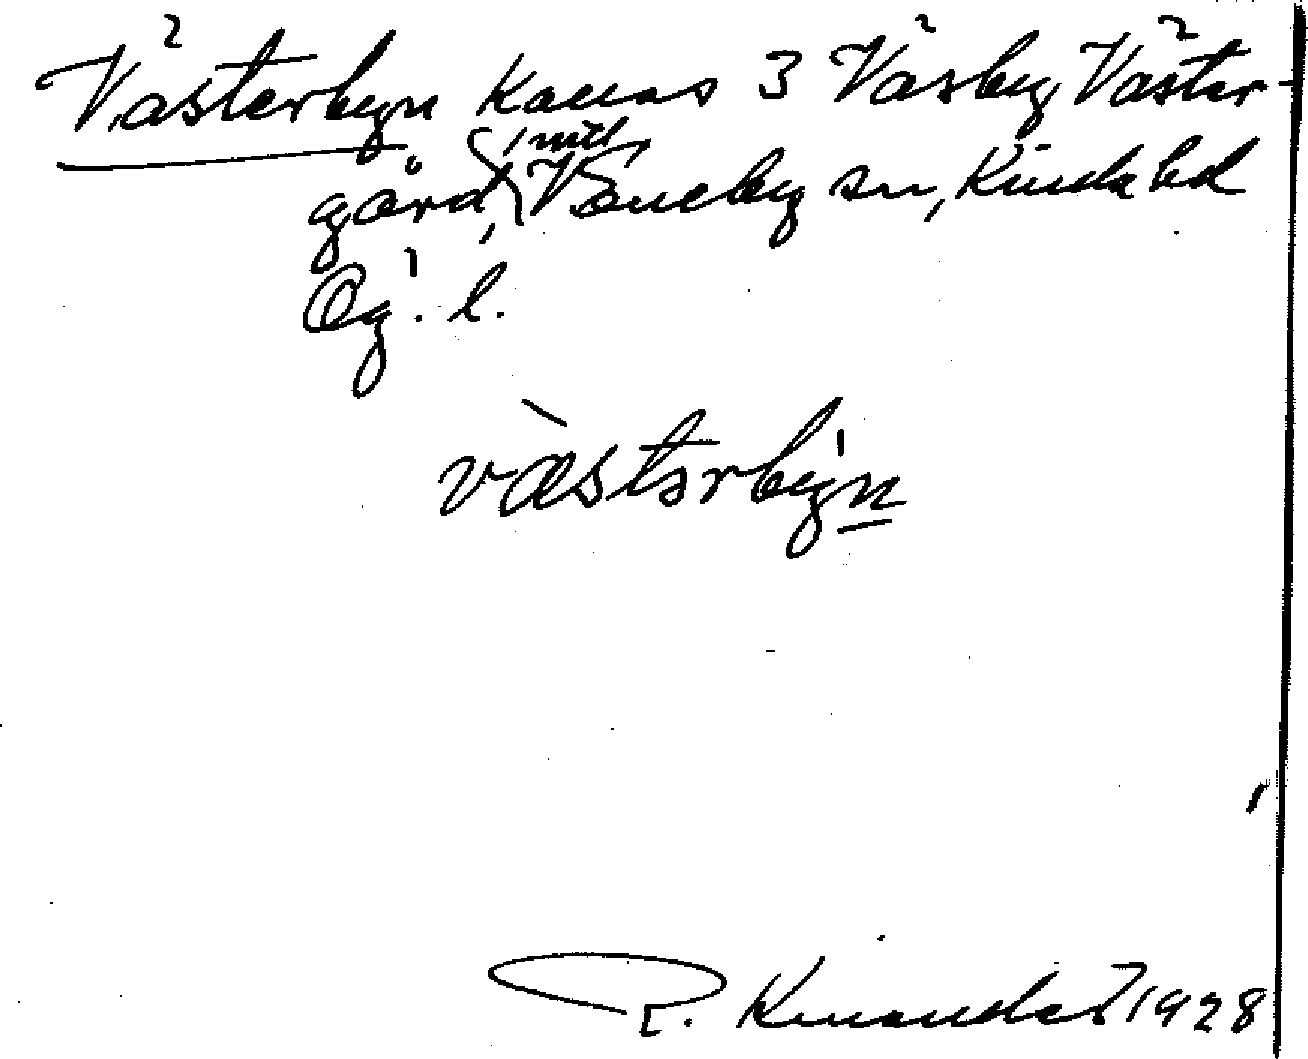 Västerbyn kallas 3 Väsby Väster-
gård, 1 mtl Väneby sn, Kinda hd
Ög. l.
västərbyn
R. Kinander 1928